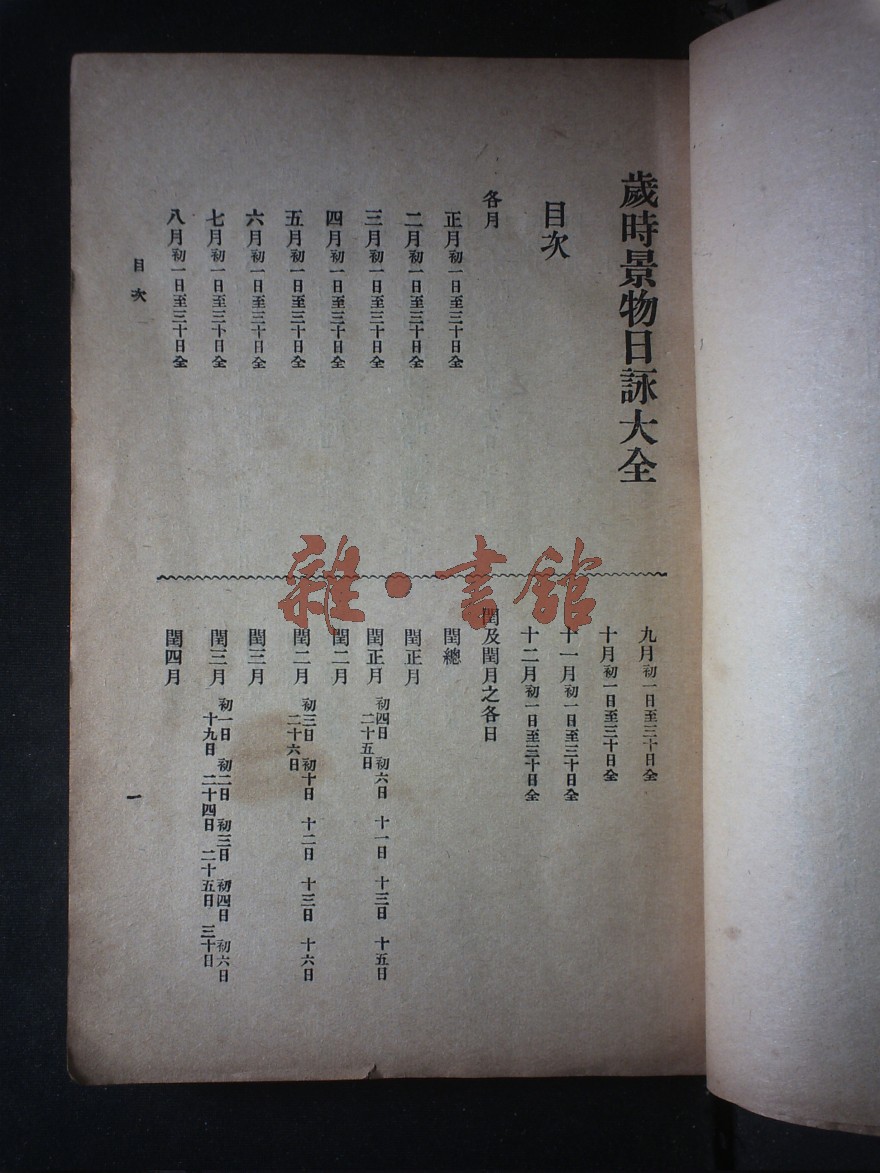 歲時景物日詠大全
目次
各月
正月初一日至三十日全
二月初一日至三十日全
三月初一日至三十日全
四月初一日至三十日全
五月初一日至三十日全
六月初一日至三十日全
七月初一日至三十日全
八月初一日至三十日全
九月初一日至三十日全
十月初一日至三十日全
十一月初一日至三十日全
十二月初一日至三十日全
閏及閏月之各日
閏總
閏正月
閏正月 初四日 初六日 十一日 十三日 十五日
二十五日
閏二月
閏二月 初三日 初十日 十二日 十三日 十六日
二十六日
閏三月
閏三月 初一日 初二日 初三日 初四日 初六日
十九日 二十四日 二十五日 三十日
閏四月
目次
一
雜·書館